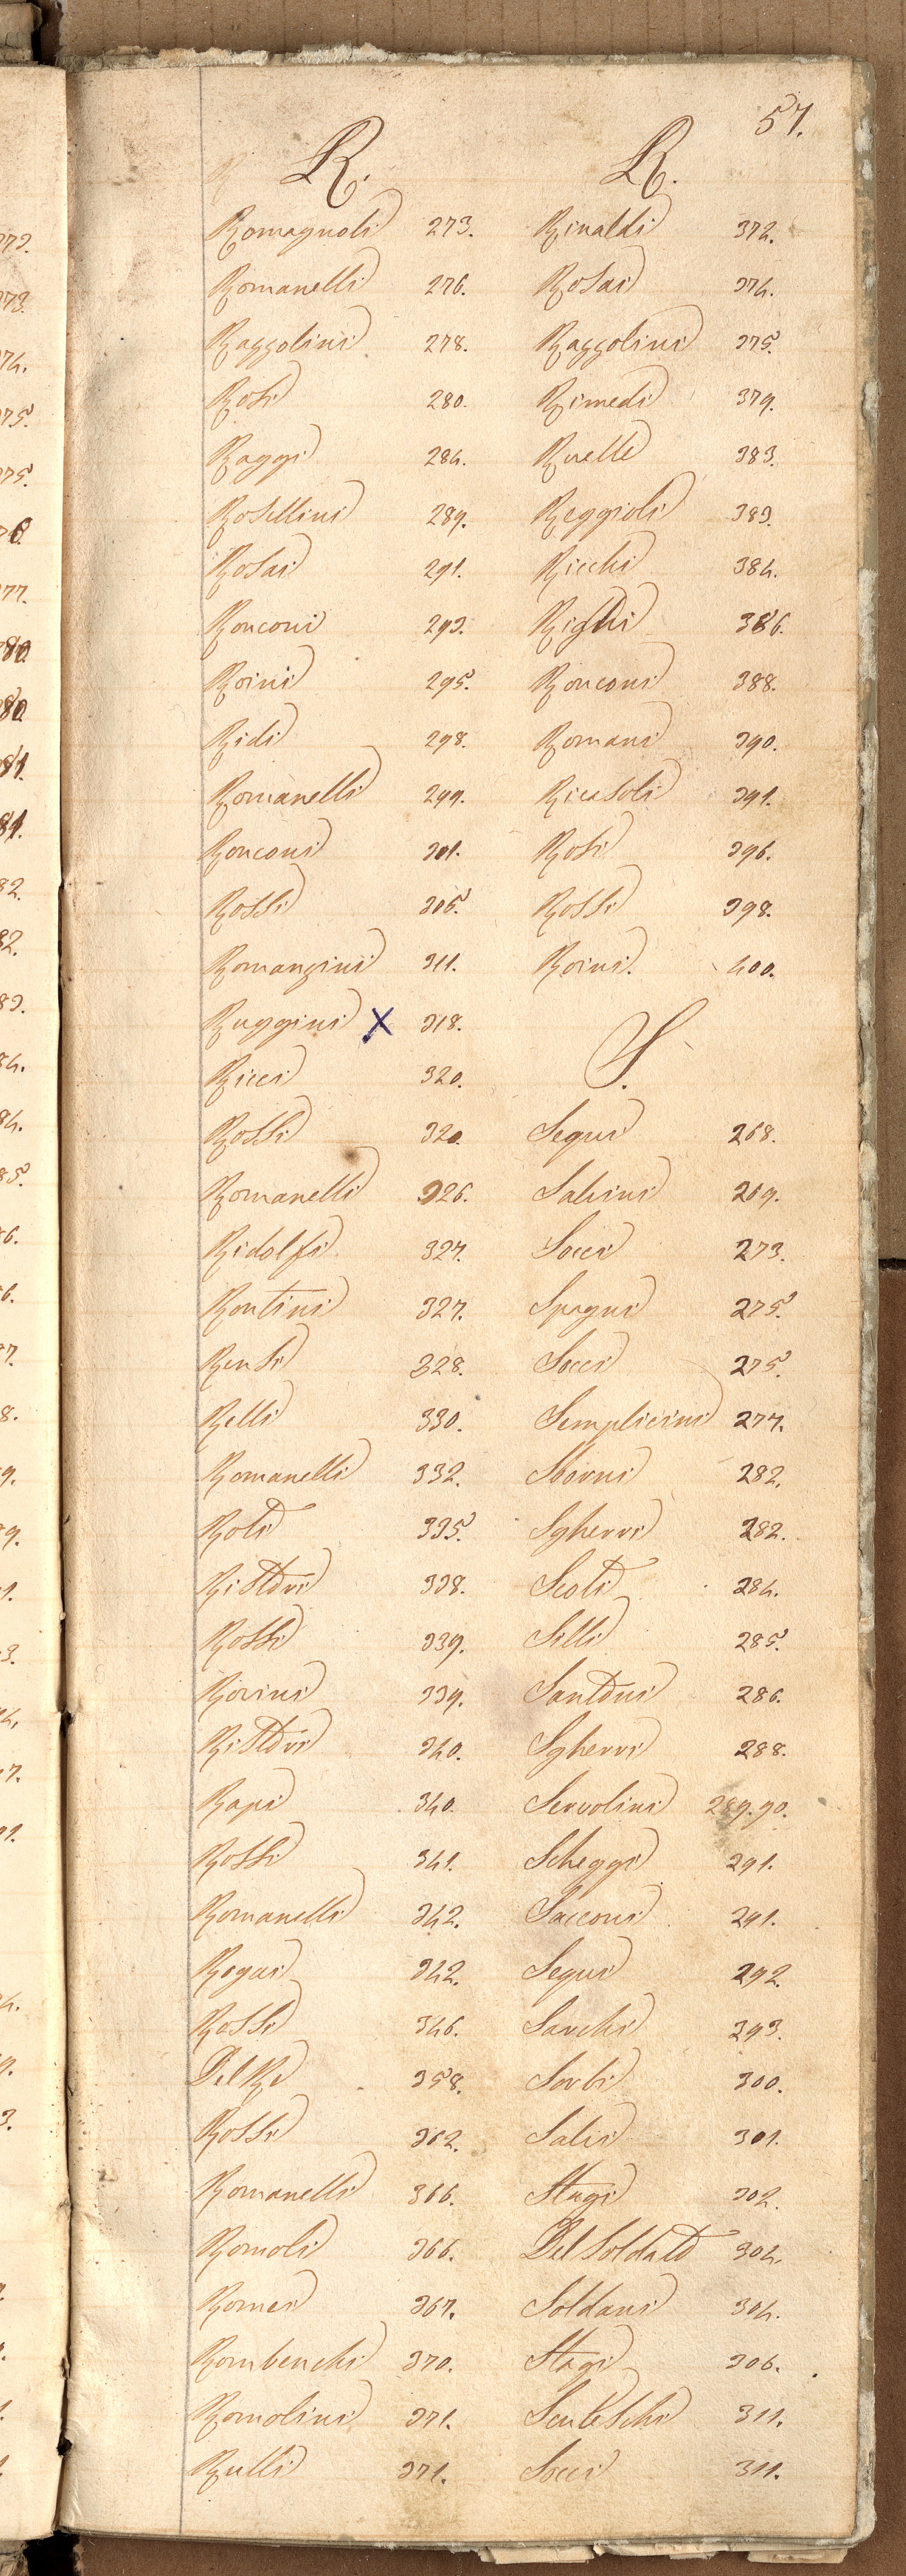 57.
R.
Romagnoli 273.
Romanelli 276.
Raggolini 278.
Rosi 280.
Raggi 284.
Rosellini 289.
Rosai 291.
Ronconi 293.
Roini 295.
Ridi 298.
Romanelli 299.
Ronconi 301.
Rossi 305.
Romanzini 311.
Ruggini X 318.
Ricci 320.
Rossi 320.
Romanelli 326.
Ridolfi 327.
Rontini 327.
Rensi 328.
Relli 330.
Romanelli 332.
Roti 335.
Ristori 338.
Rossi 339.
Rovini 339.
Ristori 340.
Rapi 340.
Rossi 341.
Romanelli 342.
Rogai 342.
Rossi 346.
Del Re 358.
Rossi 362.
Romanelli 366.
Romoli 366.
Romei 367.
Rombenchi 370.
Romolini 371.
Rulli 371.
R.
Rinaldi 372.
Rosai 374.
Raggolini 375.
Rimedi 379.
Ruelle 383.
Reggioli 383.
Ricchi 384.
Righi 386.
Ronconi 388.
Romani 390.
Ricasoli 391.
Rosi 396.
Rossi 398.
Roini. 400.
S.
Segni 268.
Salvini 269.
Socci 273.
Spagni 275.
Socci 275.
Semplicini 277.
Sborni 282.
Sgherri 282.
Scoti 284.
Silli 285.
Santoni 286.
Sgherri 288.
Servolini 289.90.
Scheggi 291.
Sacconi 291.
Segni 292.
Sarchi 293.
Sorbi 300.
Salvi 301.
Stagi 302.
Del Soldato 304.
Soldani 304.
Stagi 306.
311.
Socci 311.